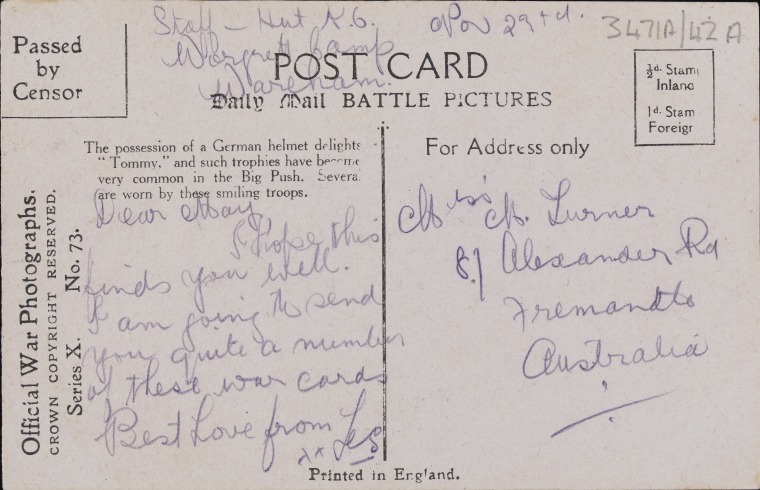 Staff - Hut K.G. Nov 29th. 3471A/42A
Worgret Camp
Wareham.
Passed
by
Censor
POST CARD
Daily Mail BATTLE PICTURES
½d. Stam
Inland
1d. Stam
Foreign
The possession of a German helmet delights
"Tommy," and such trophies have become
very common in the Big Push. Severa
are worn by these smiling troops.
For Address only
Official War Photographs.
CROWN COPYRIGHT RESERVED.
Series X. No. 73.
Dear May
I hope this
finds you well.
I am going to send
you quite a number
of these war cards
Best Love from Les
xx
Miss M. Turner
81 Alexander Rd
Fremantle
Australia
Printed in England.